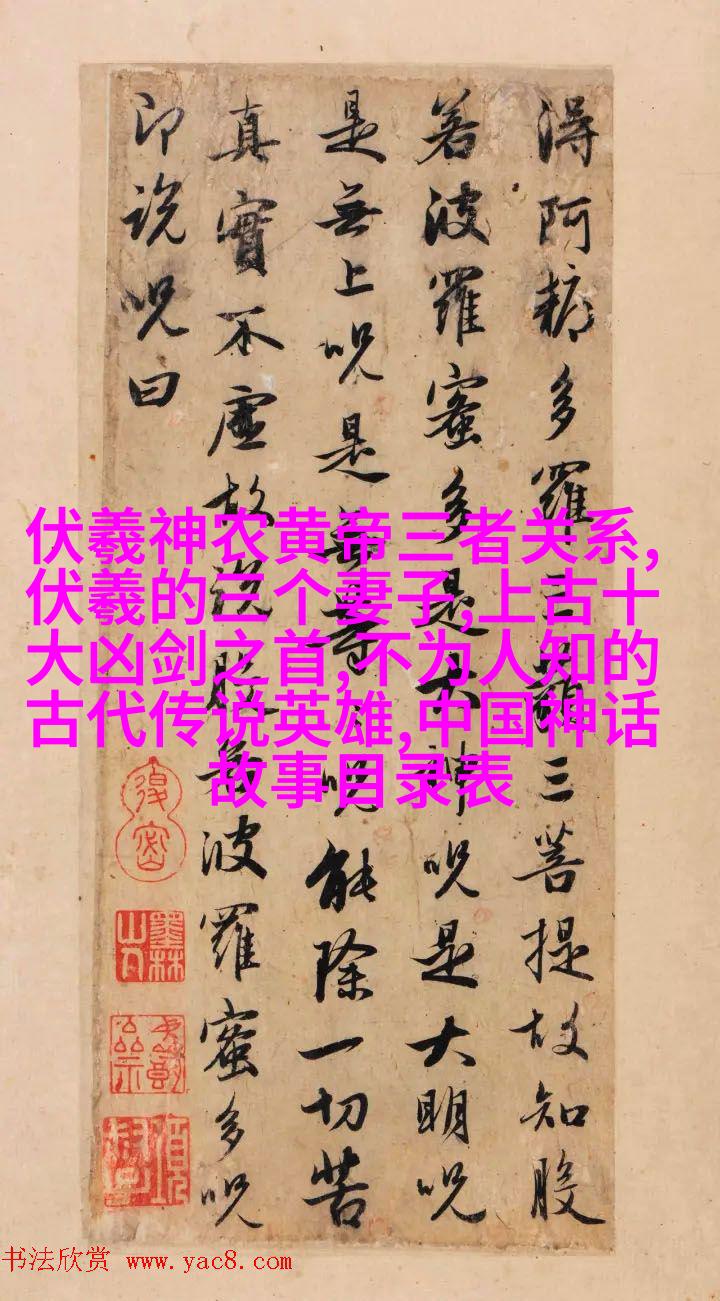 得阿耨多羅三藐三菩提故知般
若波羅蜜多是大神呪是大明呪
是無上呪是無等々呪能除一切苦
真實不虛故說般若波羅蜜多呪
即說呪曰
伏羲神农黄帝三者关系,
伏羲的三个妻子,上古十
大凶剑之首,不为人知的
古代传说英雄,中国神话
故事目录表
墨林山人
书法欣赏 www.yac8.com